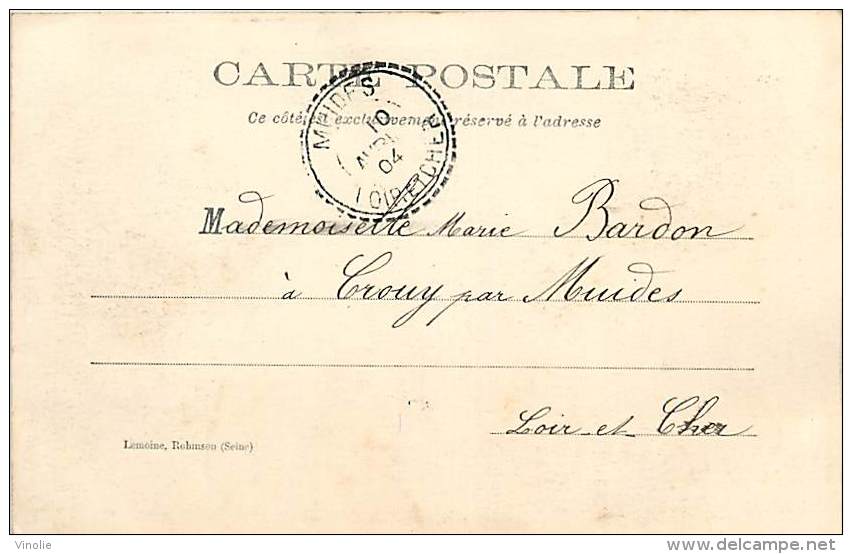 CARTE POSTALE
Ce côté est exclusivement réservé à l'adresse
MUIDES
10
AVRIL
04
LOIR-ET-CHER
Mademoiselle Marie Bardon
à Crouy par Muides
Loir-et-Cher
Lemoine, Robinson (Seine)
Vinolie
delcampe.net